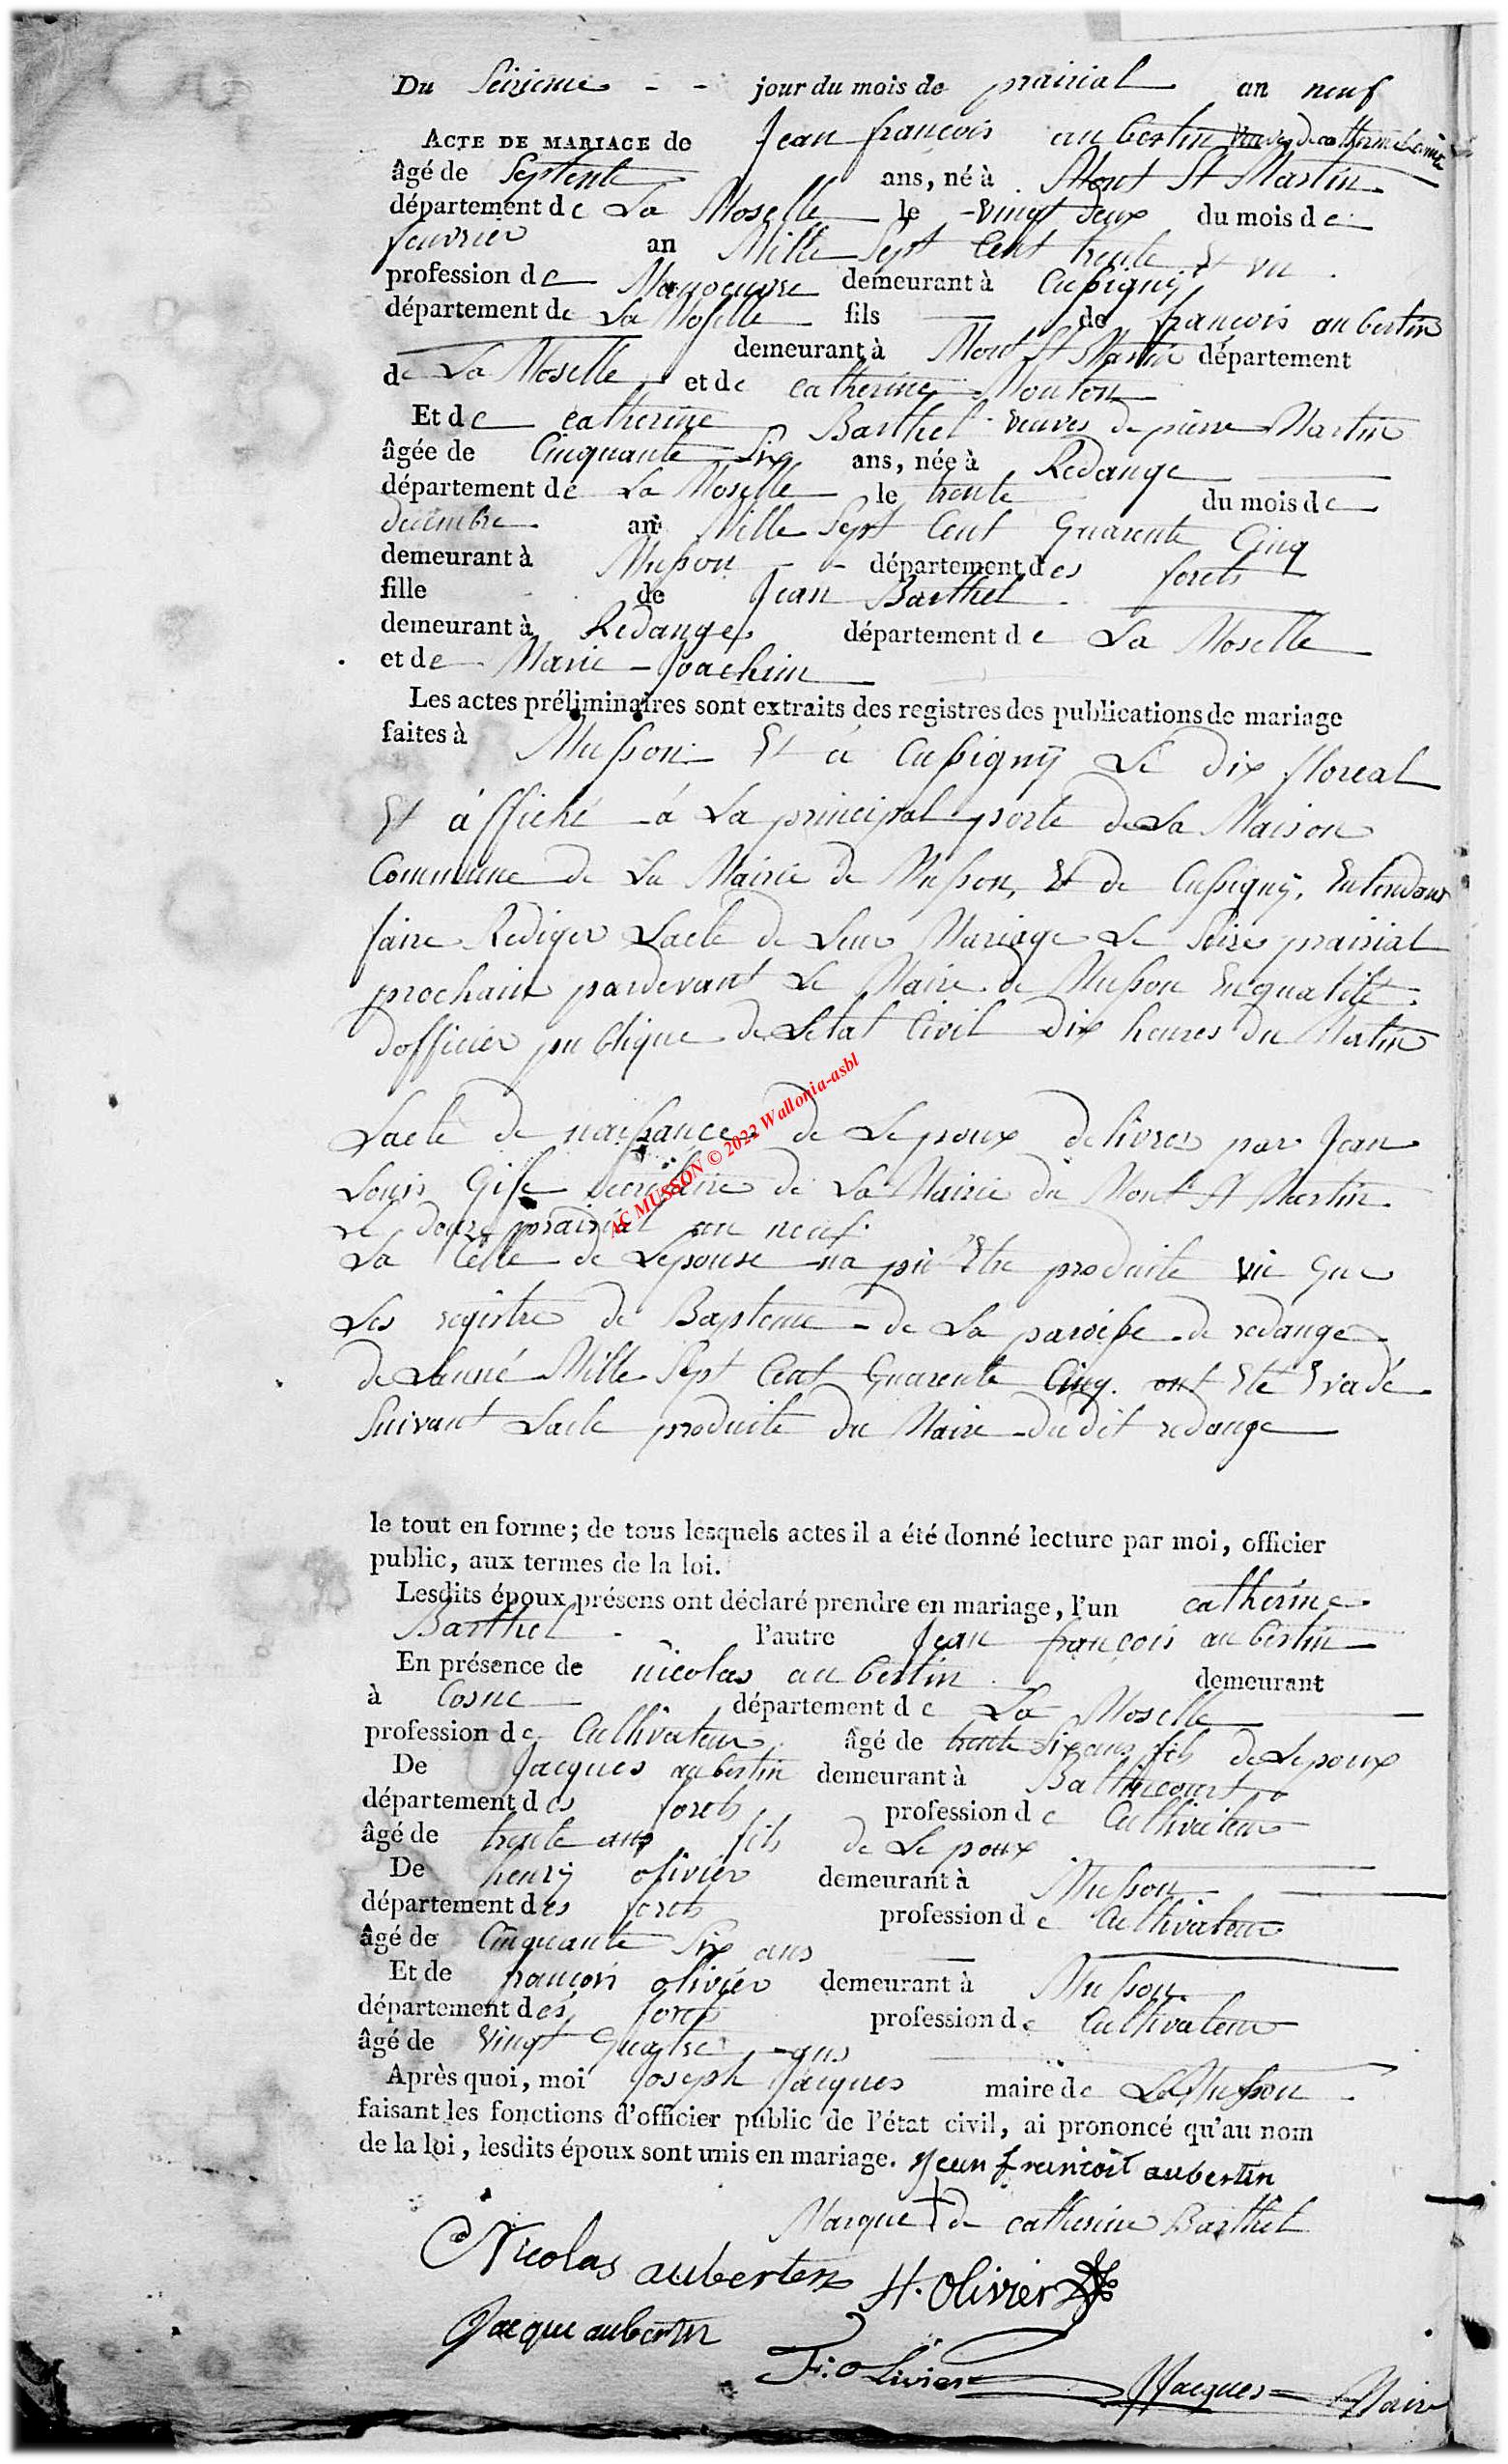 Du Seizieme - - jour du mois de prairial an neuf
ACTE DE MARIAGE de Jean françois aubertin veuf de catherine
âgé de Septente ans, né à Mont St Martin
département de La Moselle le vingt deux du mois de
fevrier an Mille Sept Cent trente Et un
profession de Manoeuvre demeurant à Cussigny
département de La Moselle fils de françois aubertin
demeurant à Mont St Martin département
de La Moselle et de catherine Mouton
Et de catherine Barthel veuve de pierre Martin
âgée de Cinquante Six ans, née à Redange
département de La Moselle le trente du mois de
decembre an Mille Sept Cent Quarente Cinq
demeurant à Musson - - département des forets
fille de Jean Barthel
demeurant à Redange département de La Moselle
et de Marie Joachim
Les actes préliminaires sont extraits des registres des publications de mariage
faites à Musson Et a Cussigny Le dix floreal
Et áffiché á La principal porte de La Maison
Commune de La Mairie de Musson, Et de Cussigny, Entendant
faire Rediger Lacte de Leur Mariage Le Seize prairial
prochain pardevant Le Maire de Musson En qualité
dofficier publique de Letat Civil dix heures du Matin
Lacte de naissance de Lepoux delivres par Jean
Louis Gise Secretaire de La Mairie du Mont St Martin
le douze prairial an neuf.
La Celle de Lepouse na pu Etre produite vu que
Les registre de Bapteme de La paroisse de redange
de Lanné Mille Sept Cent Quarente Cinq. ont Eté Evadé
Suivant Lacte produite du Maire du dit redange
le tout en forme; de tous lesquels actes il a été donné lecture par moi, officier
public, aux termes de la loi.
Lesdits époux présens ont déclaré prendre en mariage, l'un catherine
Barthel l'autre Jean françois aubertin
En présence de nicolas aubertin demeurant
à Cosne département de La Moselle
profession de Cultivateur âgé de trente Six ans fils de Lepoux
De Jacques aubertin demeurant à Battincourt
département des forets profession de Cultivateur
âgé de trente ans fils de Lepoux
De henrÿ olivier demeurant à Musson
département des forets profession de Cultivateur
âgé de Cinquante Six ans
Et de françois olivier demeurant à Musson
département des forets profession de Cultivateur
âgé de Vingt Quatre ans
Après quoi, moi Joseph Jacques maire de La Musson
faisant les fonctions d'officier public de l'état civil, ai prononcé qu'au nom
de la loi, lesdits époux sont unis en mariage. Jean francoit aubertin
Marque + de catherine Barthel
Nicolas aubertin H. Olivier
Jacque aubertin
F: Olivier JJacques Maire
AC MUSSON © 2022 Wallonia-asbl